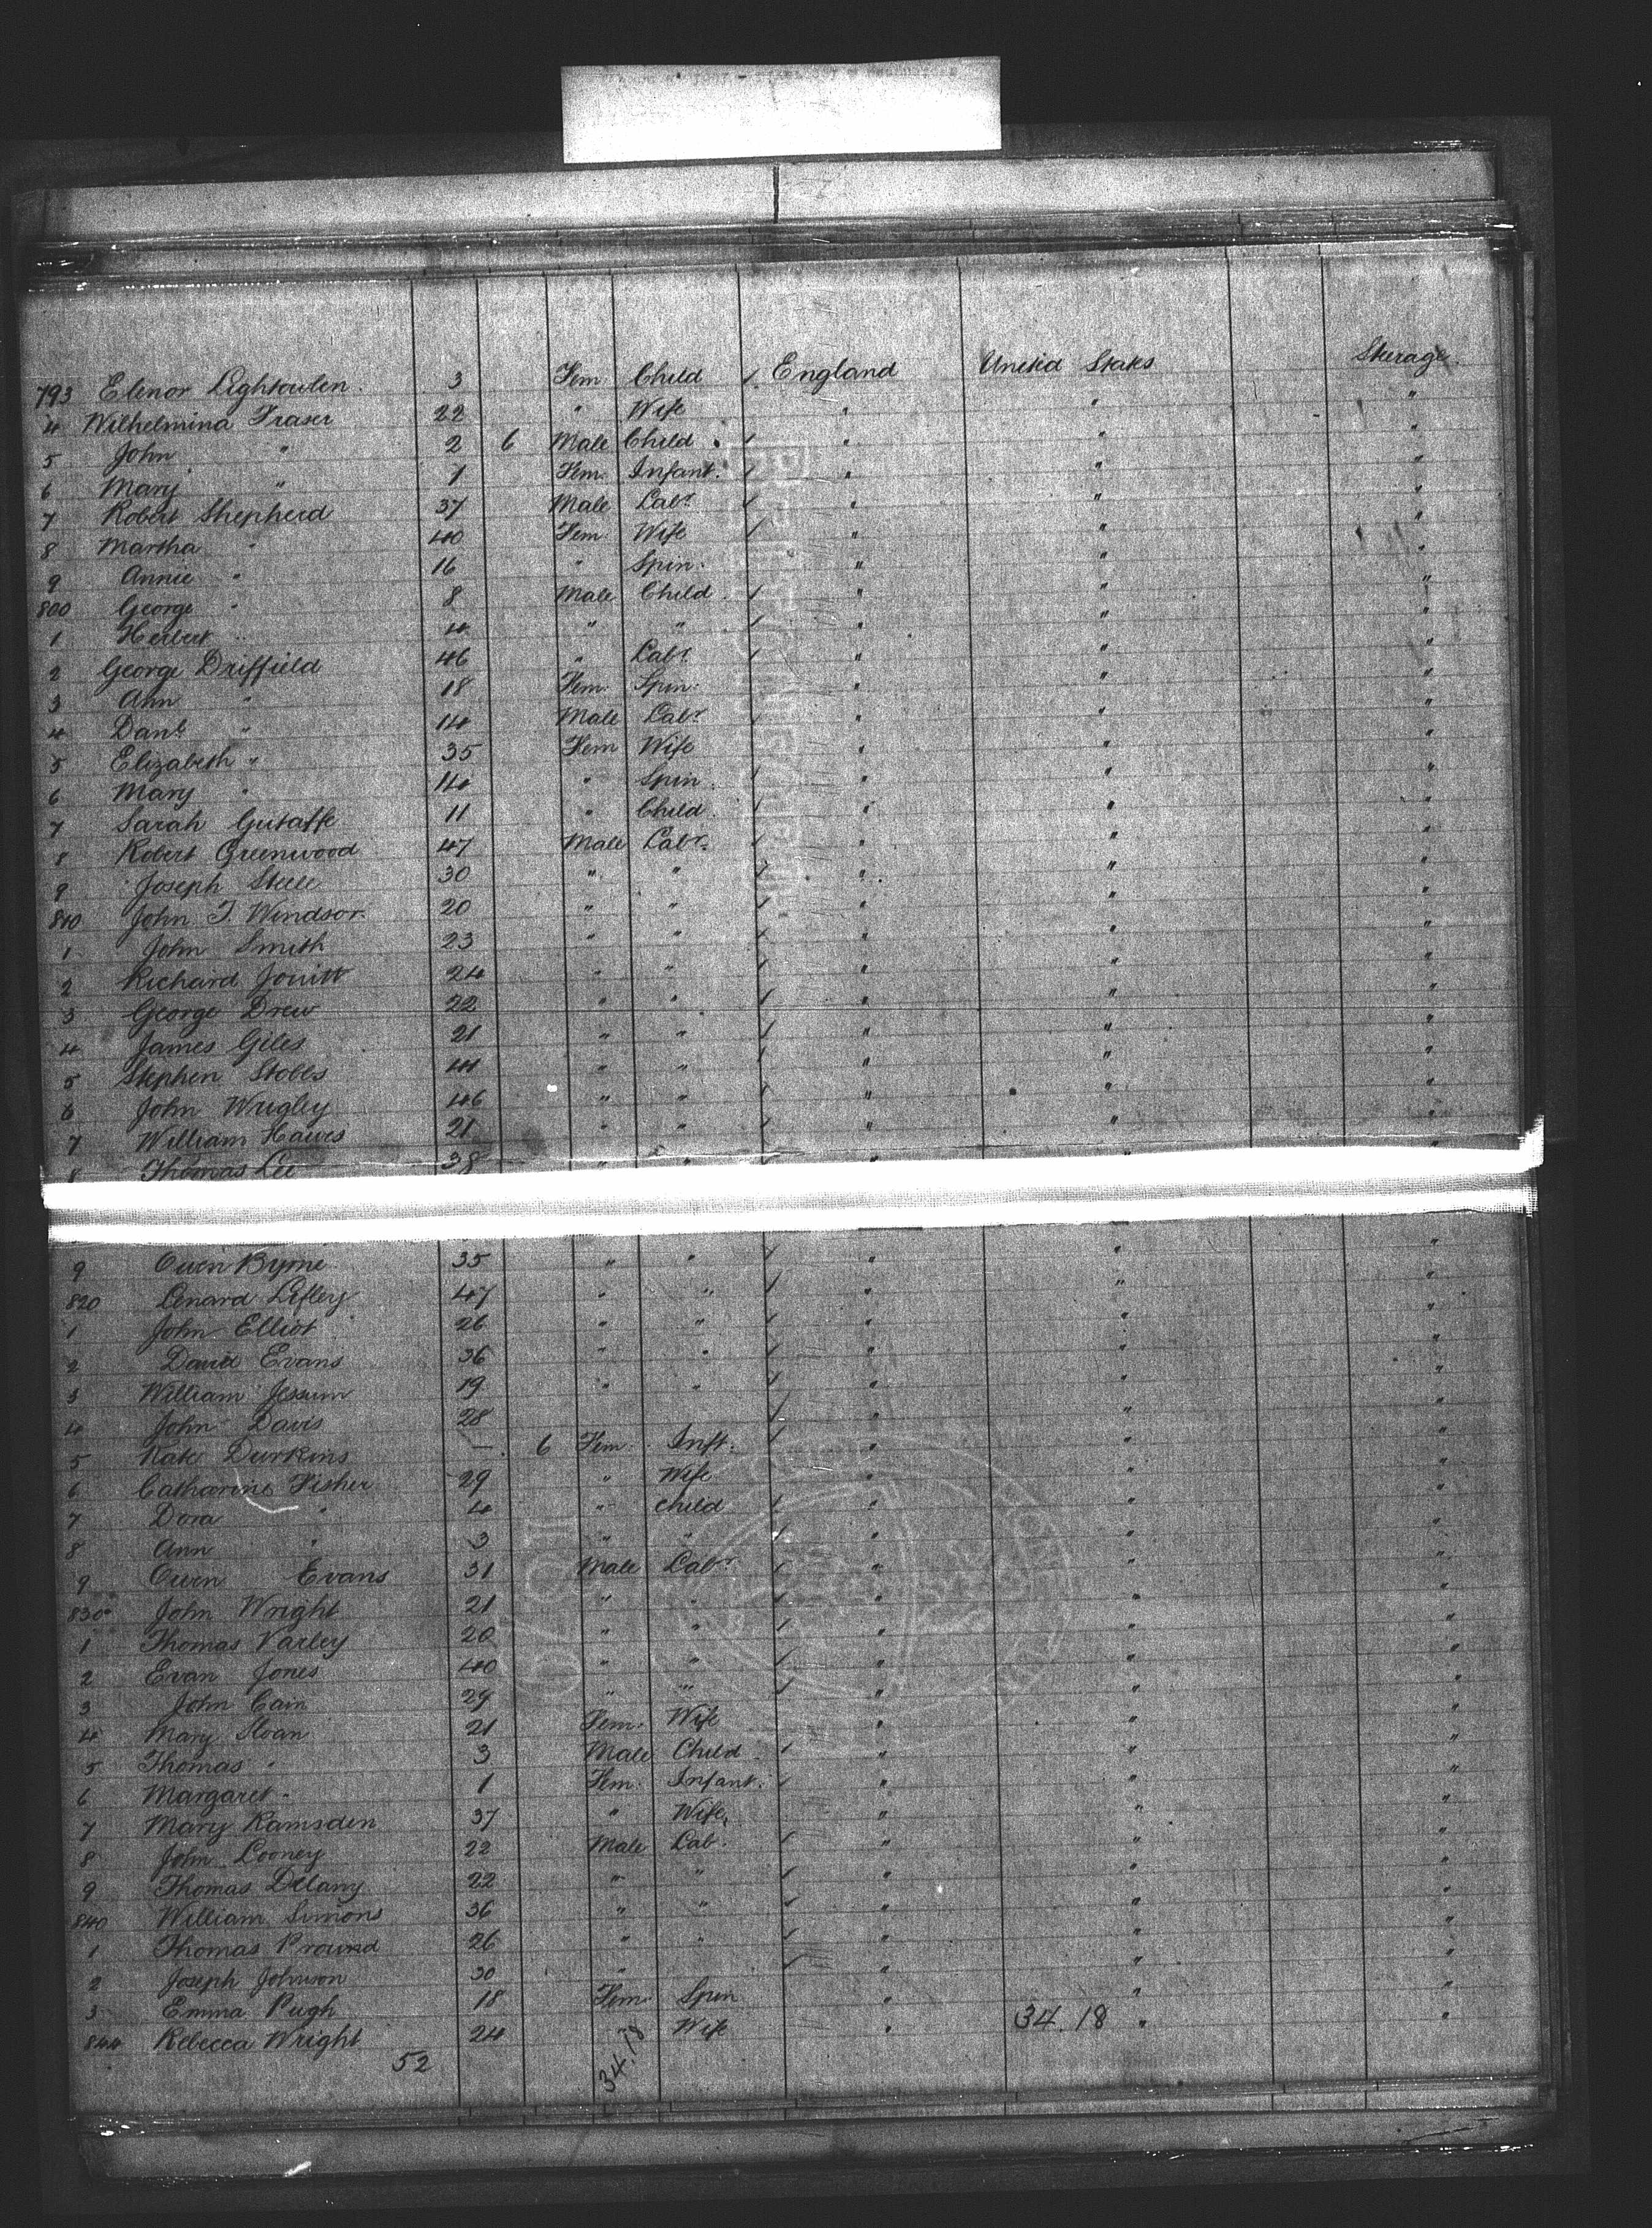 793 Elenor Lightowlen 3 Fem Child England United States Steerage
4 Wilhelmina Fraser 22 " Wife " " "
5 John " 2 6 Male Child " " "
6 Mary " 1 Fem. Infant. " " "
7 Robert Shepherd 37 Male Labr " " "
8 Martha " 40 Fem Wife " " "
9 Annie " 16 " Spin. " " "
800 George " 8 Male Child " " "
1 Herbert " 4 " " " " "
2 George Driffield 46 " Labr " " "
3 Ann " 18 Fem. Spin. " " "
4 Danl " 14 Male Labr " " "
5 Elizabeth " 35 Fem Wife " " "
6 Mary " 14 " Spin. " " "
7 Sarah 11 " Child " " "
8 Robert Greenwood 47 Male Labr. " " "
9 Joseph Steele 30 " " " " "
810 John T. Windsor 20 " " " " "
1 John Smith 23 " " " " "
2 Richard Jouitt 24 " " " " "
3 George Drew 22 " " " " "
4 James Giles 21 " " " " "
5 Stephen Stobbs 44 " " " " "
6 John Wrigley 46 " " " " "
7 William Hawes 21 " " " " "
8 Thomas Lee 38 " " " " "
9 Owen Byrne 35 " " " " "
820 Lenard Lifley 47 " " " " "
1 John Elliot 26 " " " " "
2 David Evans 36 " " " " "
3 William Jessum 19 " " " " "
4 John Davis 28 " " "
5 Kate Durkins — 6 Fem. Inft. " " "
6 Catharine Fisher 29 " Wife " " "
7 Dora " 4 " Child " " "
8 Ann " 3 " " " " "
9 Owen Evans 31 Male Labr " " "
830 John Wright 21 " " " " "
1 Thomas Varley 20 " " " " "
2 Evan Jones 40 " " " " "
3 John Cain 29 " " " " "
4 Mary Sloan 21 Fem. Wife " " "
5 Thomas " 3 Male Child " " "
6 Margaret " 1 Fem. Infant. " " "
7 Mary Ramsden 37 " Wife " " "
8 John Looney 22 Male Lab. " " "
9 Thomas Delany 22 " " " " "
840 William Simons 36 " " " " "
1 Thomas Pround 26 " " " " "
2 Joseph Johnson 30 " " " "
3 Emma Pugh 18 Fem. Spin " " "
844 Rebecca Wright 24 " Wife " 34.18 " "
52 34.18